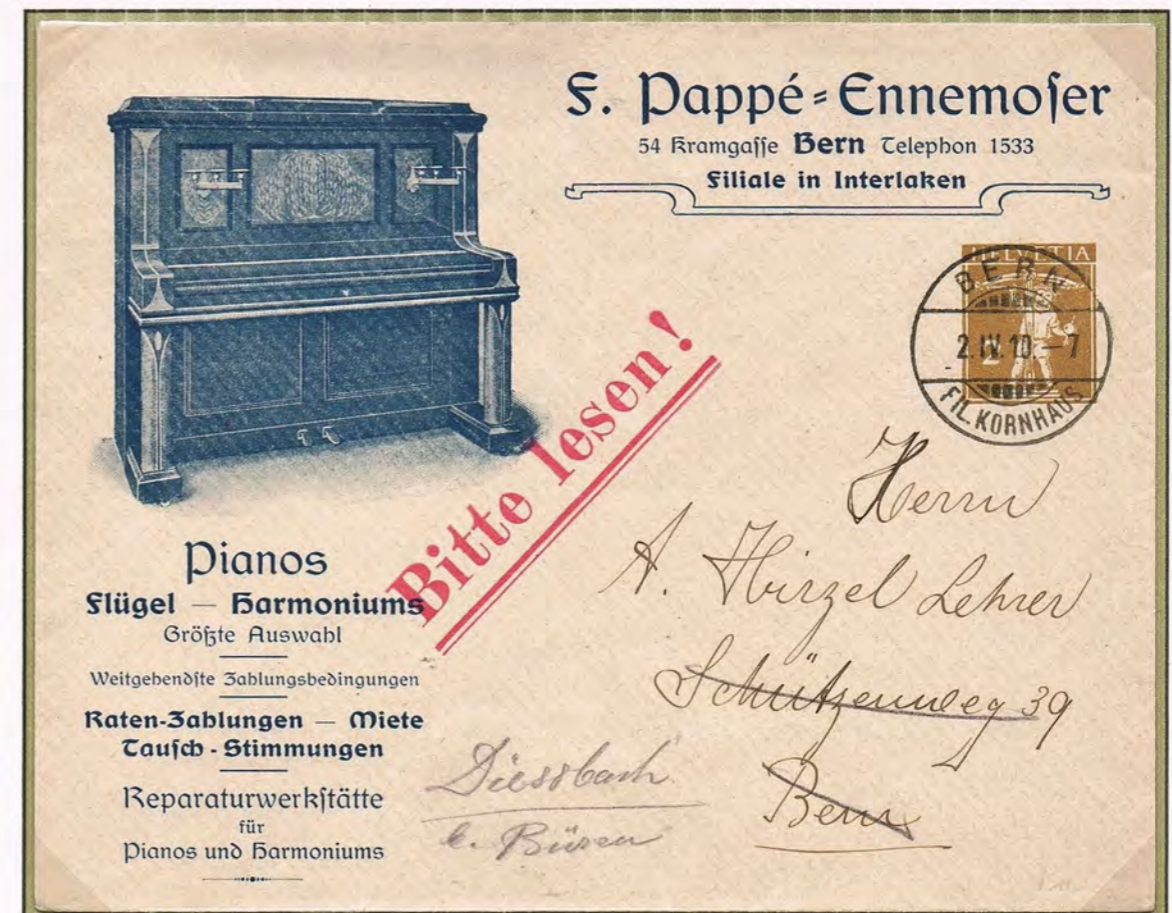 F. Pappé-Ennemoser
54 Kramgasse Bern Telephon 1533
Filiale in Interlaken
HELVETIA
2
BERN
2.IV.10.—7
FIL. KORNHAUS
Bitte lesen!
Pianos
Flügel — Harmoniums
Größte Auswahl
Weitgehendste Zahlungsbedingungen
Raten-Zahlungen — Miete
Tausch - Stimmungen
Reparaturwerkstätte
für
Pianos und Harmoniums
Herrn
A. Hirzel Lehrer
Schützenweg 39
Bern
Diessbach
b. Büren